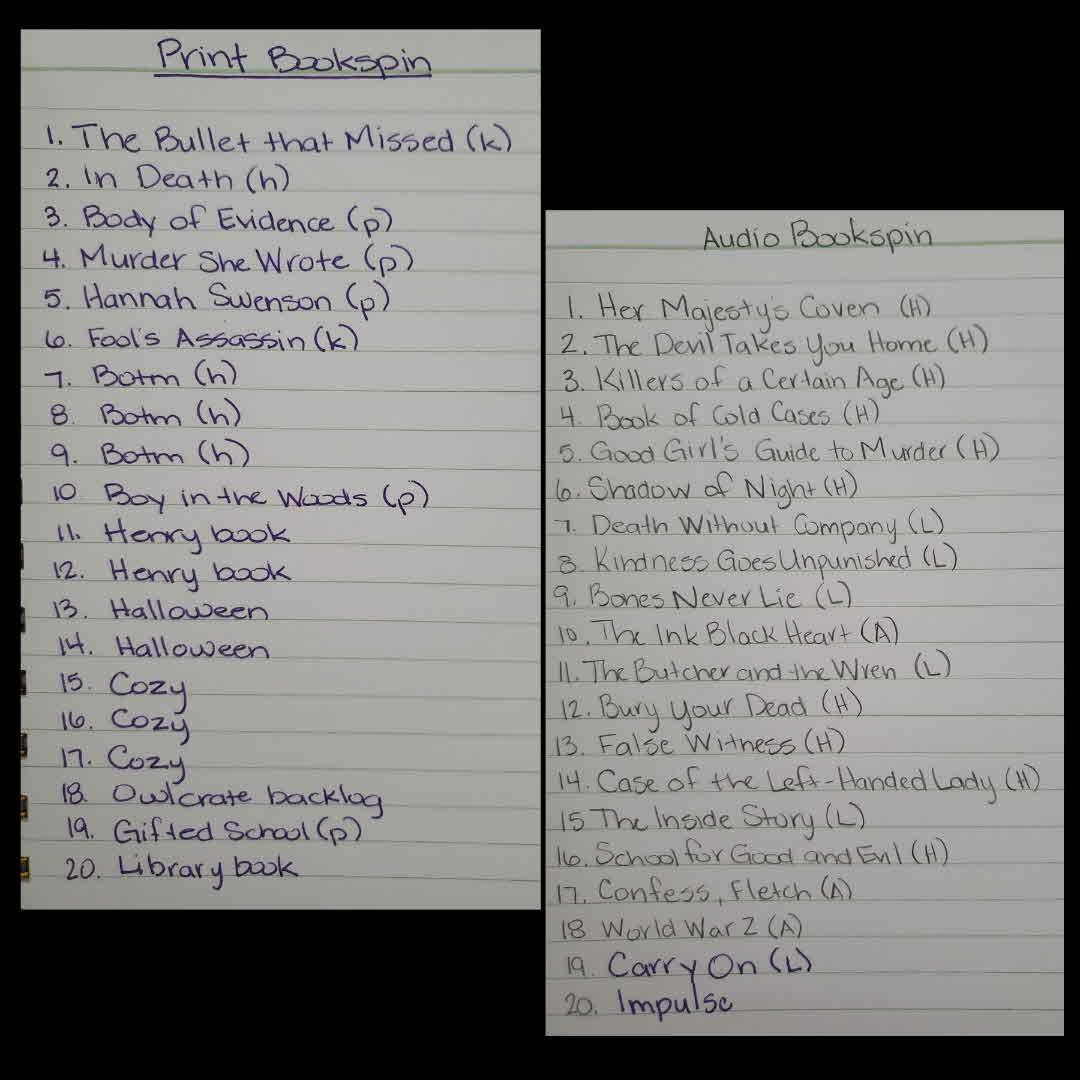 Print Bookspin
1. The Bullet that Missed (k)
2. In Death (h)
3. Body of Evidence (p)
4. Murder She Wrote (p)
5. Hannah Swenson (p)
6. Fool's Assassin (k)
7. Botm (h)
8. Botm (h)
9. Botm (h)
10 Boy in the Woods (p)
11. Henry book
12. Henry book
13. Halloween
14. Halloween
15. Cozy
16. Cozy
17. Cozy
18. Owlcrate backlog
19. Gifted School (p)
20. Library book
Audio Bookspin
1. Her Majesty's Coven (H)
2. The Devil Takes You Home (H)
3. Killers of a Certain Age (H)
4. Book of Cold Cases (H)
5. Good Girl's Guide to Murder (H)
6. Shadow of Night (H)
7. Death Without Company (L)
8. Kindness Goes Unpunished (L)
9. Bones Never Lie (L)
10. The Ink Black Heart (A)
11. The Butcher and the Wren (L)
12. Bury Your Dead (H)
13. False Witness (H)
14. Case of the Left-Handed Lady (H)
15 The Inside Story (L)
16. School for Good and Evil (H)
17. Confess, Fletch (A)
18 World War Z (A)
19. Carry On (L)
20. Impulse